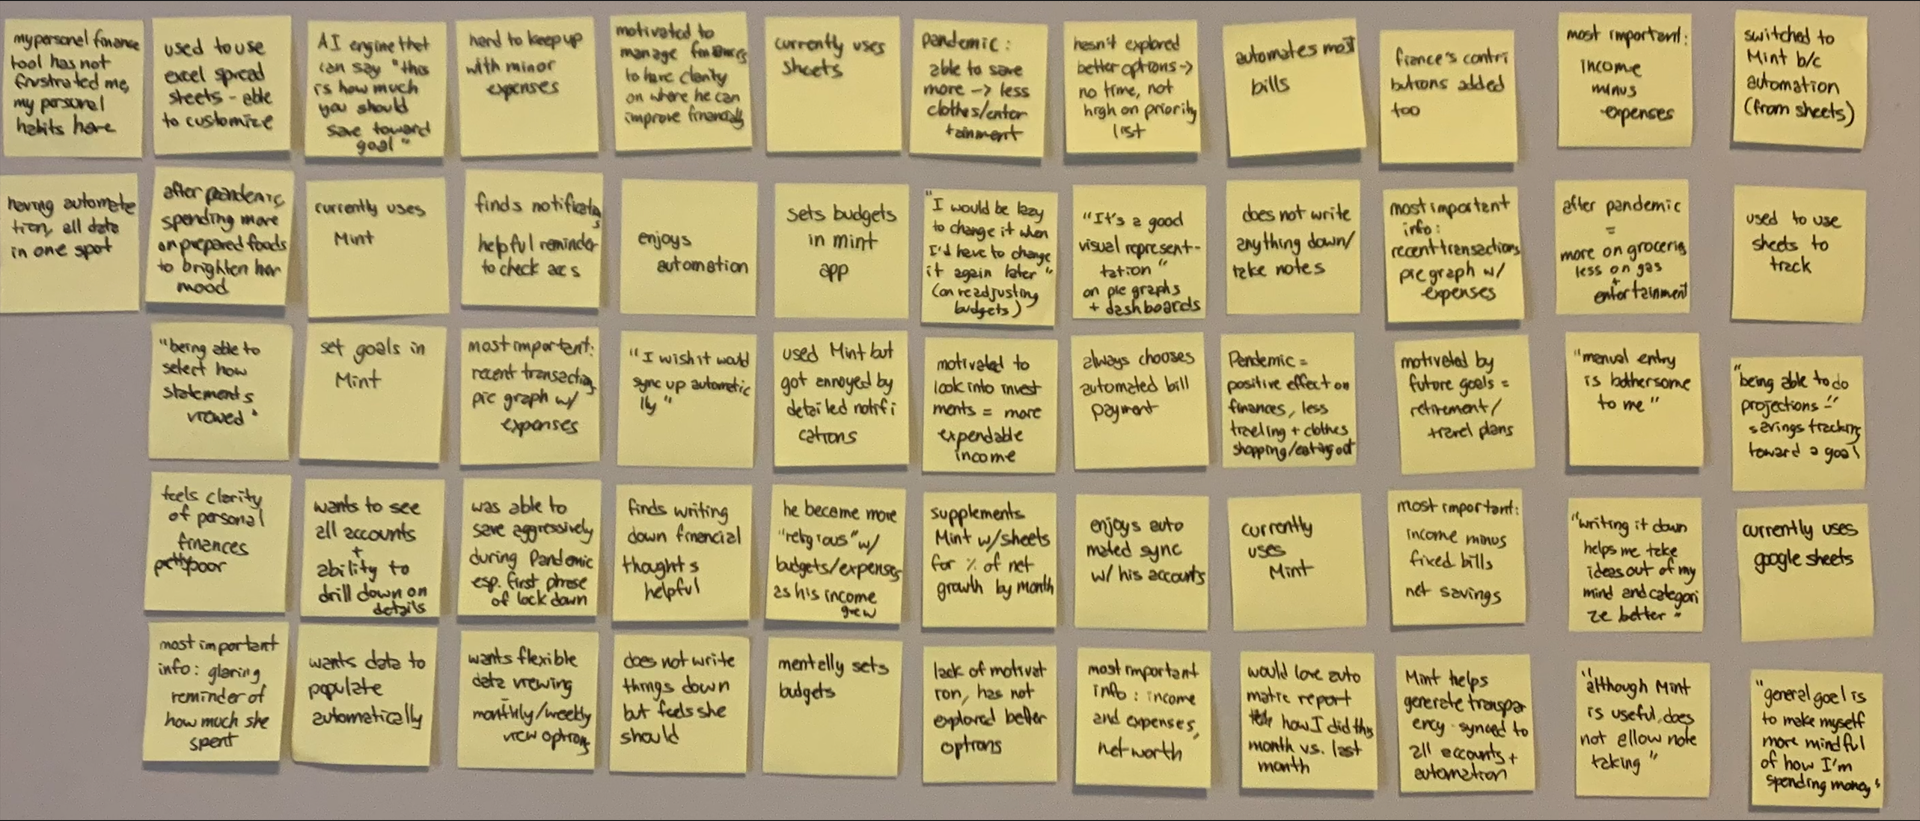 my personal finance
tool has not
frustrated me,
my personal
habits have
used to use
excel spread
sheets - able
to customize
AI engine that
can say "this
is how much
you should
save toward
goal"
hard to keep up
with minor
expenses
motivated to
manage finances
to have clarity
on where he can
improve financially
currently uses
sheets
pandemic:
able to save
more -> less
clothes/enter
tainment
hasn't explored
better options ->
no time, not
high on priority
list
automates most
bills
fiance's contri
butions added
too
most important:
income
minus
expenses
switched to
Mint b/c
automation
(from sheets)
having automa
tion, all data
in one spot
after pandemic,
spending more
on prepared foods
to brighten her
mood
currently uses
Mint
finds notificatns
helpful reminder
to check accs
enjoys
automation
sets budgets
in mint
app
"I would be lazy
to change it when
I'd have to change
it again later"
(on readjusting
budgets)
"It's a good
visual represent-
tation"
on pie graphs
+ dashboards
does not write
anything down/
take notes
most important
info:
recent transactions
pie graph w/
expenses
after pandemic
=
more on groceries
less on gas
+
entertainment
used to use
sheets to
track
"being able to
select how
statements
viewed"
set goals in
Mint
most important:
recent transactions,
pie graph w/
expenses
"I wish it would
sync up automatic
lly"
used Mint but
got annoyed by
detailed notifi
cations
motivated to
look into invest
ments = more
expendable
income
always chooses
automated bill
payment
Pandemic =
positive effect on
finances, less
traveling + clothes
shopping/eating out
motivated by
future goals =
retirement/
travel plans
"manual entry
is bothersome
to me"
"being able to do
projections"
savings tracking
toward a goal
feels clarity
of personal
finances
pretty poor
wants to see
all accounts
+
ability to
drill down on
details
was able to
save aggressively
during Pandemic
esp. first phase
of lock down
finds writing
down financial
thoughts
helpful
he became more
"religious" w/
budgets/expenses
as his income
grew
supplements
Mint w/sheets
for % of net
growth by month
enjoys auto
mated sync
w/ his accounts
currently
uses
Mint
most important:
income minus
fixed bills
net savings
"writing it down
helps me take
ideas out of my
mind and categori
ze better"
currently uses
google sheets
most important
info: glaring
reminder of
how much she
spent
wants data to
populate
automatically
wants flexible
data viewing
-
monthly/weekly
view options
does not write
things down
but feels she
should
mentally sets
budgets
lack of motivat
ion, has not
explored better
options
most important
info: income
and expenses,
net worth
would love auto
matic report
how I did this
month vs. last
month
Mint helps
generate transpar
ency - synced to
all accounts +
automation
"although Mint
is useful, does
not allow note
taking"
"general goal is
to make myself
more mindful
of how I'm
spending money"